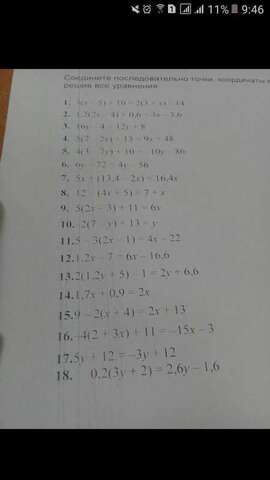 11% 9:46
Соедините последовательно точки, координаты
решив все уравнения
1.
2. 1,2(2x – 4) + 0,6 = 3x – 3,6
3. 16y – 4 = 12y + 8
4.
5. 4(3 – 2y) + 10 = –10y – 86
6. 6y – 72 = 4y – 56
7. 5x + (13,4 – 2x) = 16,4x
8. 12 – (4x + 5) = 7 + x
9. 5(2x – 3) + 11 = 6x
10. 2(7 – y) + 13 = y
11. 5 – 3(2x – 1) = 4x – 22
12. 1,2x – 7 = 6x – 16,6
13. 2(1,2y + 5) – 1 = 2y + 6,6
14. 1,7x + 0,9 = 2x
15. 9 – 2(x + 4) = 2x + 13
16. –4(2 + 3x) + 11 = –15x – 3
17. 5y + 12 = –3y + 12
18. 0,2(3y + 2) = 2,6y – 1,6